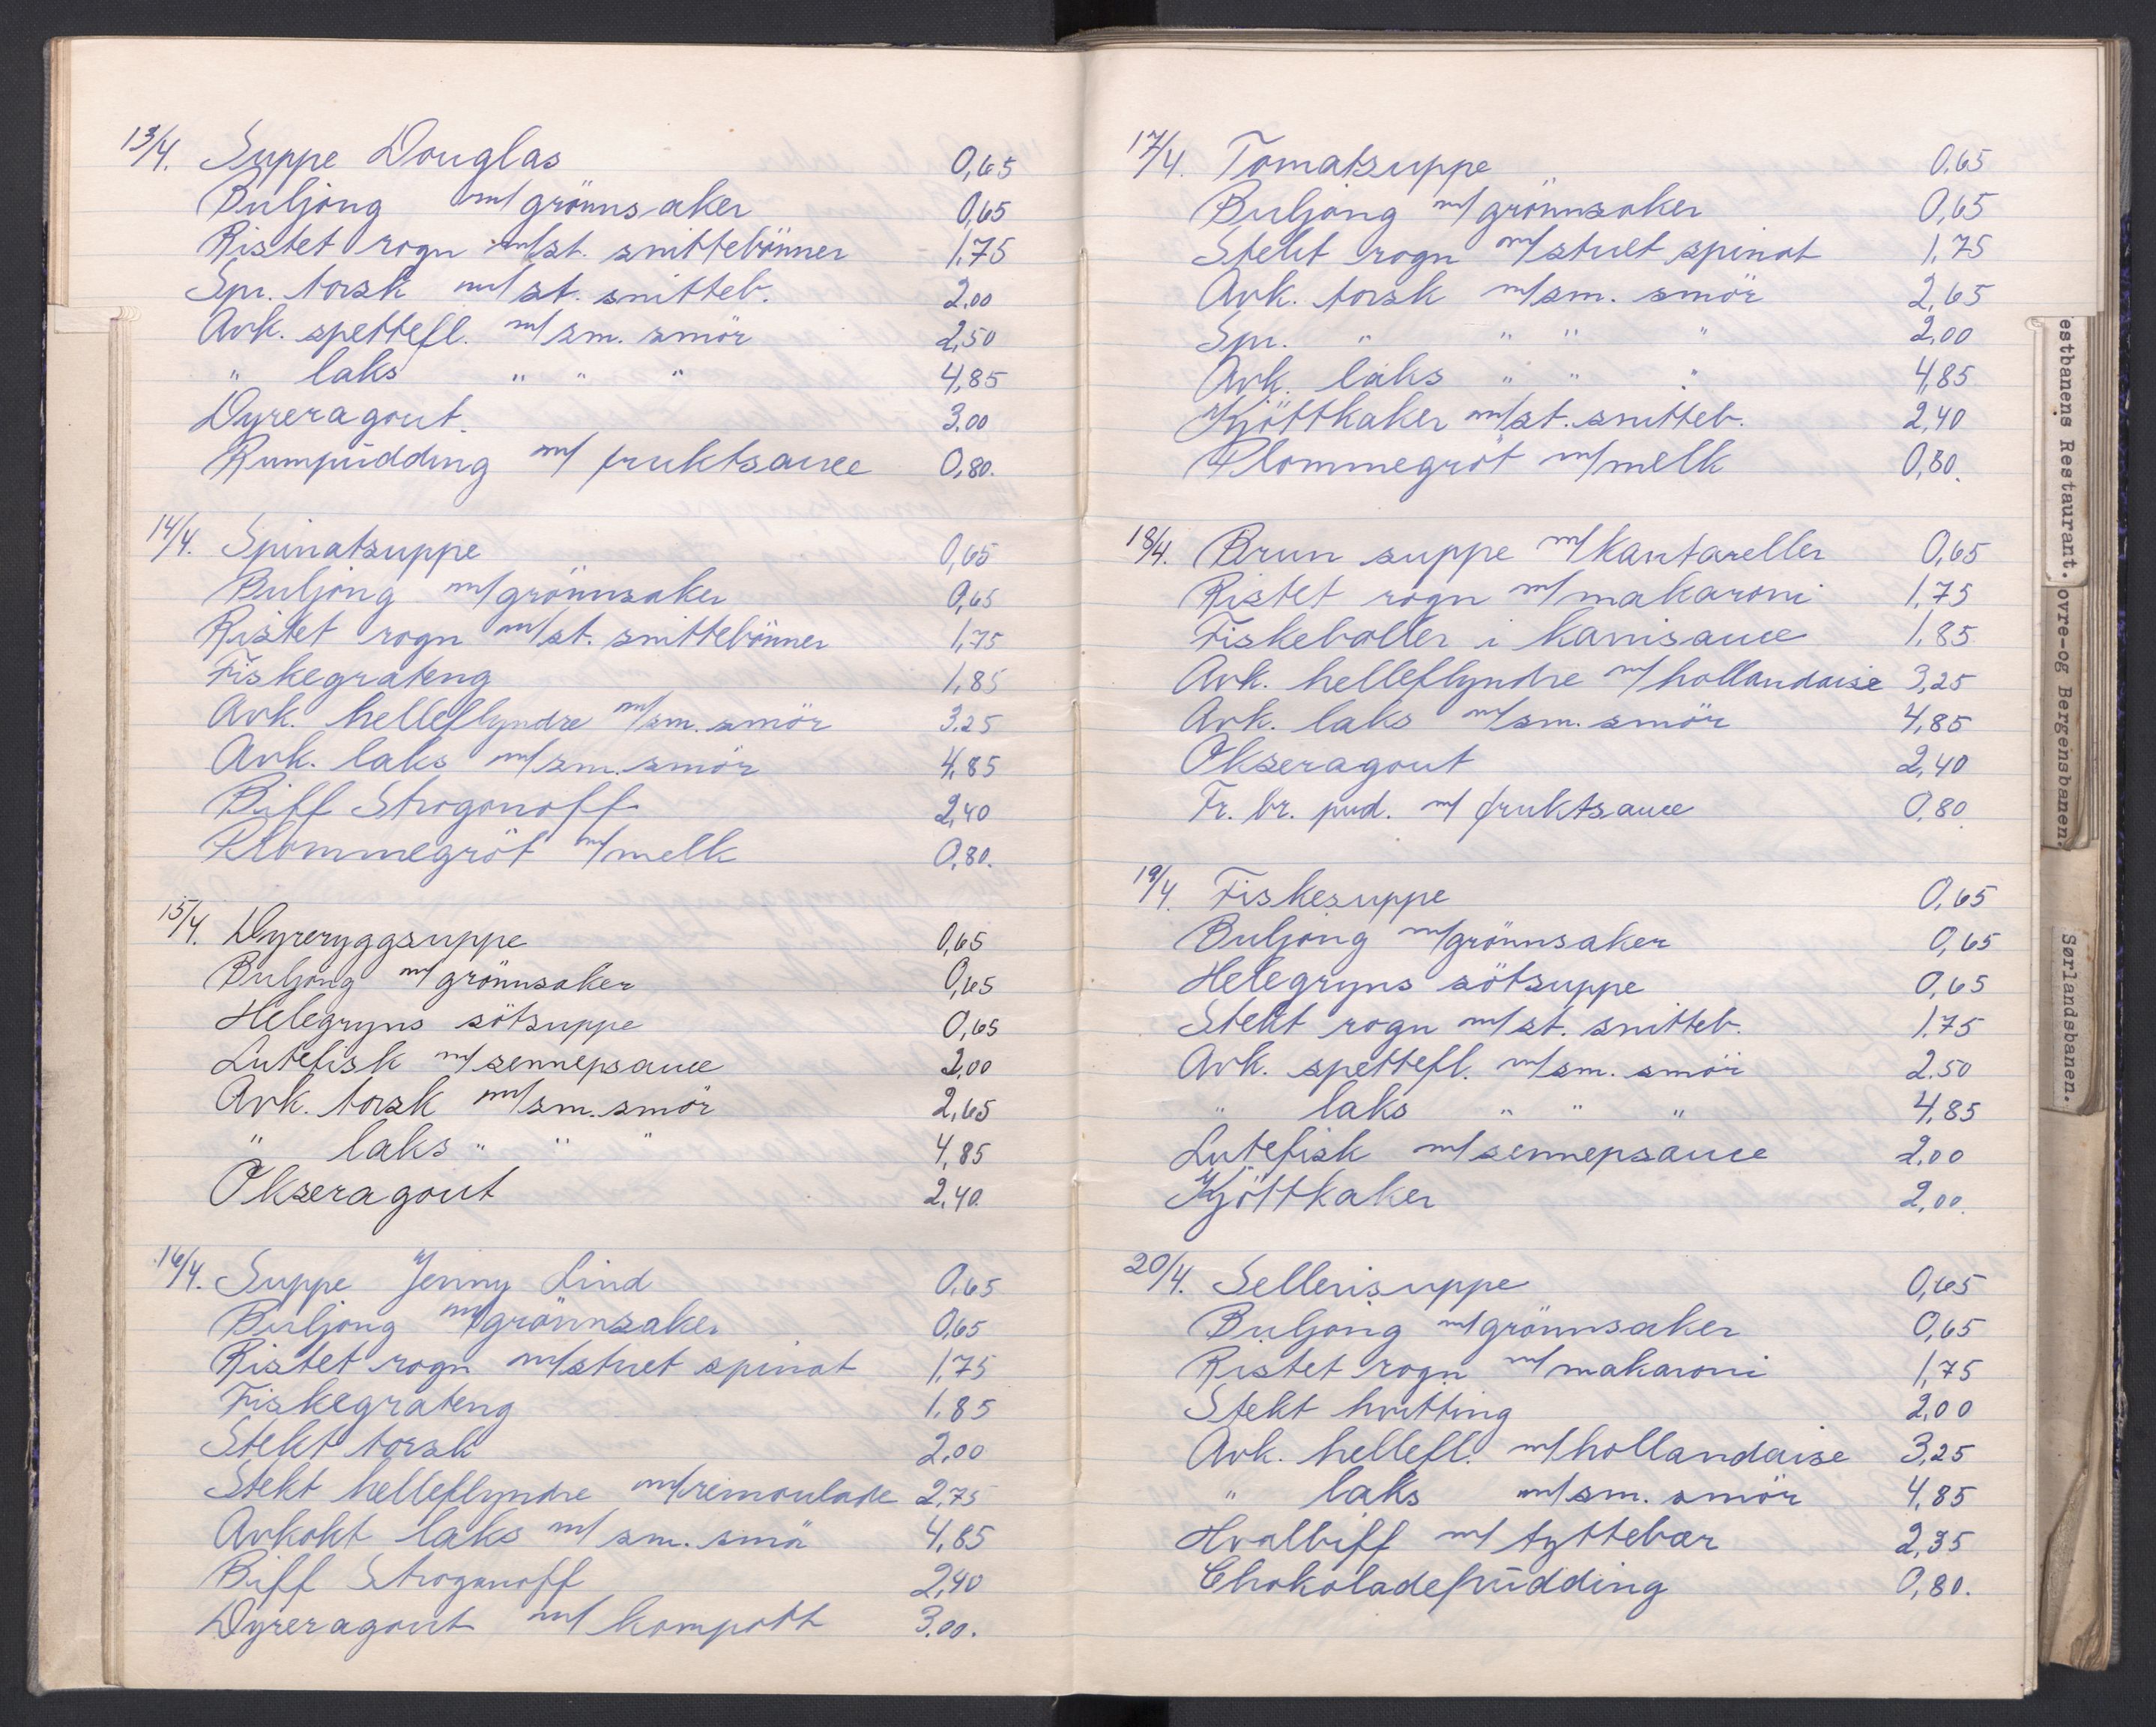 13/4. Suppe Douglas 0,65
Buljong m/grönnsaker 0,65
Ristet rogn m/st. snittebönner 1,75
Spr. torsk m/st. snitteb. 2.00
Avk. spettefl. m/sm. smör 2,50
" laks " " " 4,85
Dyreragout. 3.00
Rumpudding m/ fruktsauce 0,80.
14/4. Spinatsuppe 0,65
Buljong m/grönnsaker 0,65
Ristet rogn m/st. snittebönner 1,75
Fiskegrateng 1,85
Avk. helleflyndre m/sm. smör 3,25
Avk. laks m/sm. smör 4,85
Biff Stroganoff 2,40
Plommegröt m/melk 0,80.
15/4. Dyreryggsuppe 0,65
Buljong m/ grönnsaker 0,65
Helegryns sötsuppe 0,65
Lutefisk m/sennepsauce 2,00
Avk. torsk m/sm. smör 2,65
" laks " " " 4,85
Okseragout 2,40.
16/4. Suppe Jenny Lind 0,65
Buljong m/grönnsaker 0,65
Ristet rogn m/stuet spinat 1,75
Fiskegrateng 1,85
Stekt torsk 2,00
Stekt helleflyndre m/remoulade 2,75
Avkokt laks m/ sm. smör 4,85
Biff Stroganoff 2,40
Dyreragout m/ kompott 3.00.
17/4. Tomatsuppe 0.65
Buljong m/grönnsaker 0,65
Stekt rogn m/stuet spinat 1,75
Avk. torsk m/sm. smör 2,65
Spr. " " " " 2,00
Avk. laks " " " 4,85
Kjöttkaker m/st. snitteb. 2,40
Plommegröt m/melk 0,80.
18/4. Brun suppe m/kantareller 0,65
Ristet rogn m/makaroni 1,75
Fiskeboller i karrisauce 1,85
Avk. helleflyndre m/hollandaise 3,25
Avk. laks m/sm. smör 4,85
Okseragout 2,40
Fr. br. pud. m/ fruktsauce 0,80
19/4. Fiskesuppe 0,65
Buljong m/grönnsaker 0,65
Helegryns sötsuppe 0,65
Stekt rogn m/st. snitteb. 1.75
Avk. spettefl. m/sm. smör 2.50
" laks " " " 4,85
Lutefisk m/sennepsauce 2,00
Kjöttkaker 2,00.
20/4. Sellerisuppe 0,65
Buljong m/grönnsaker 0,65
Ristet rogn m/makaroni 1,75
Stekt hvitting 2,00
Avk. hellefl. m/hollandaise 3,25
" laks m/sm. smör 4,85
Hvalbiff m/ tyttebær 2,35
Chokoladepudding 0,80.
estbanens Restaurant.
ovre-og Bergensbanen.
Sørlandsbanen.